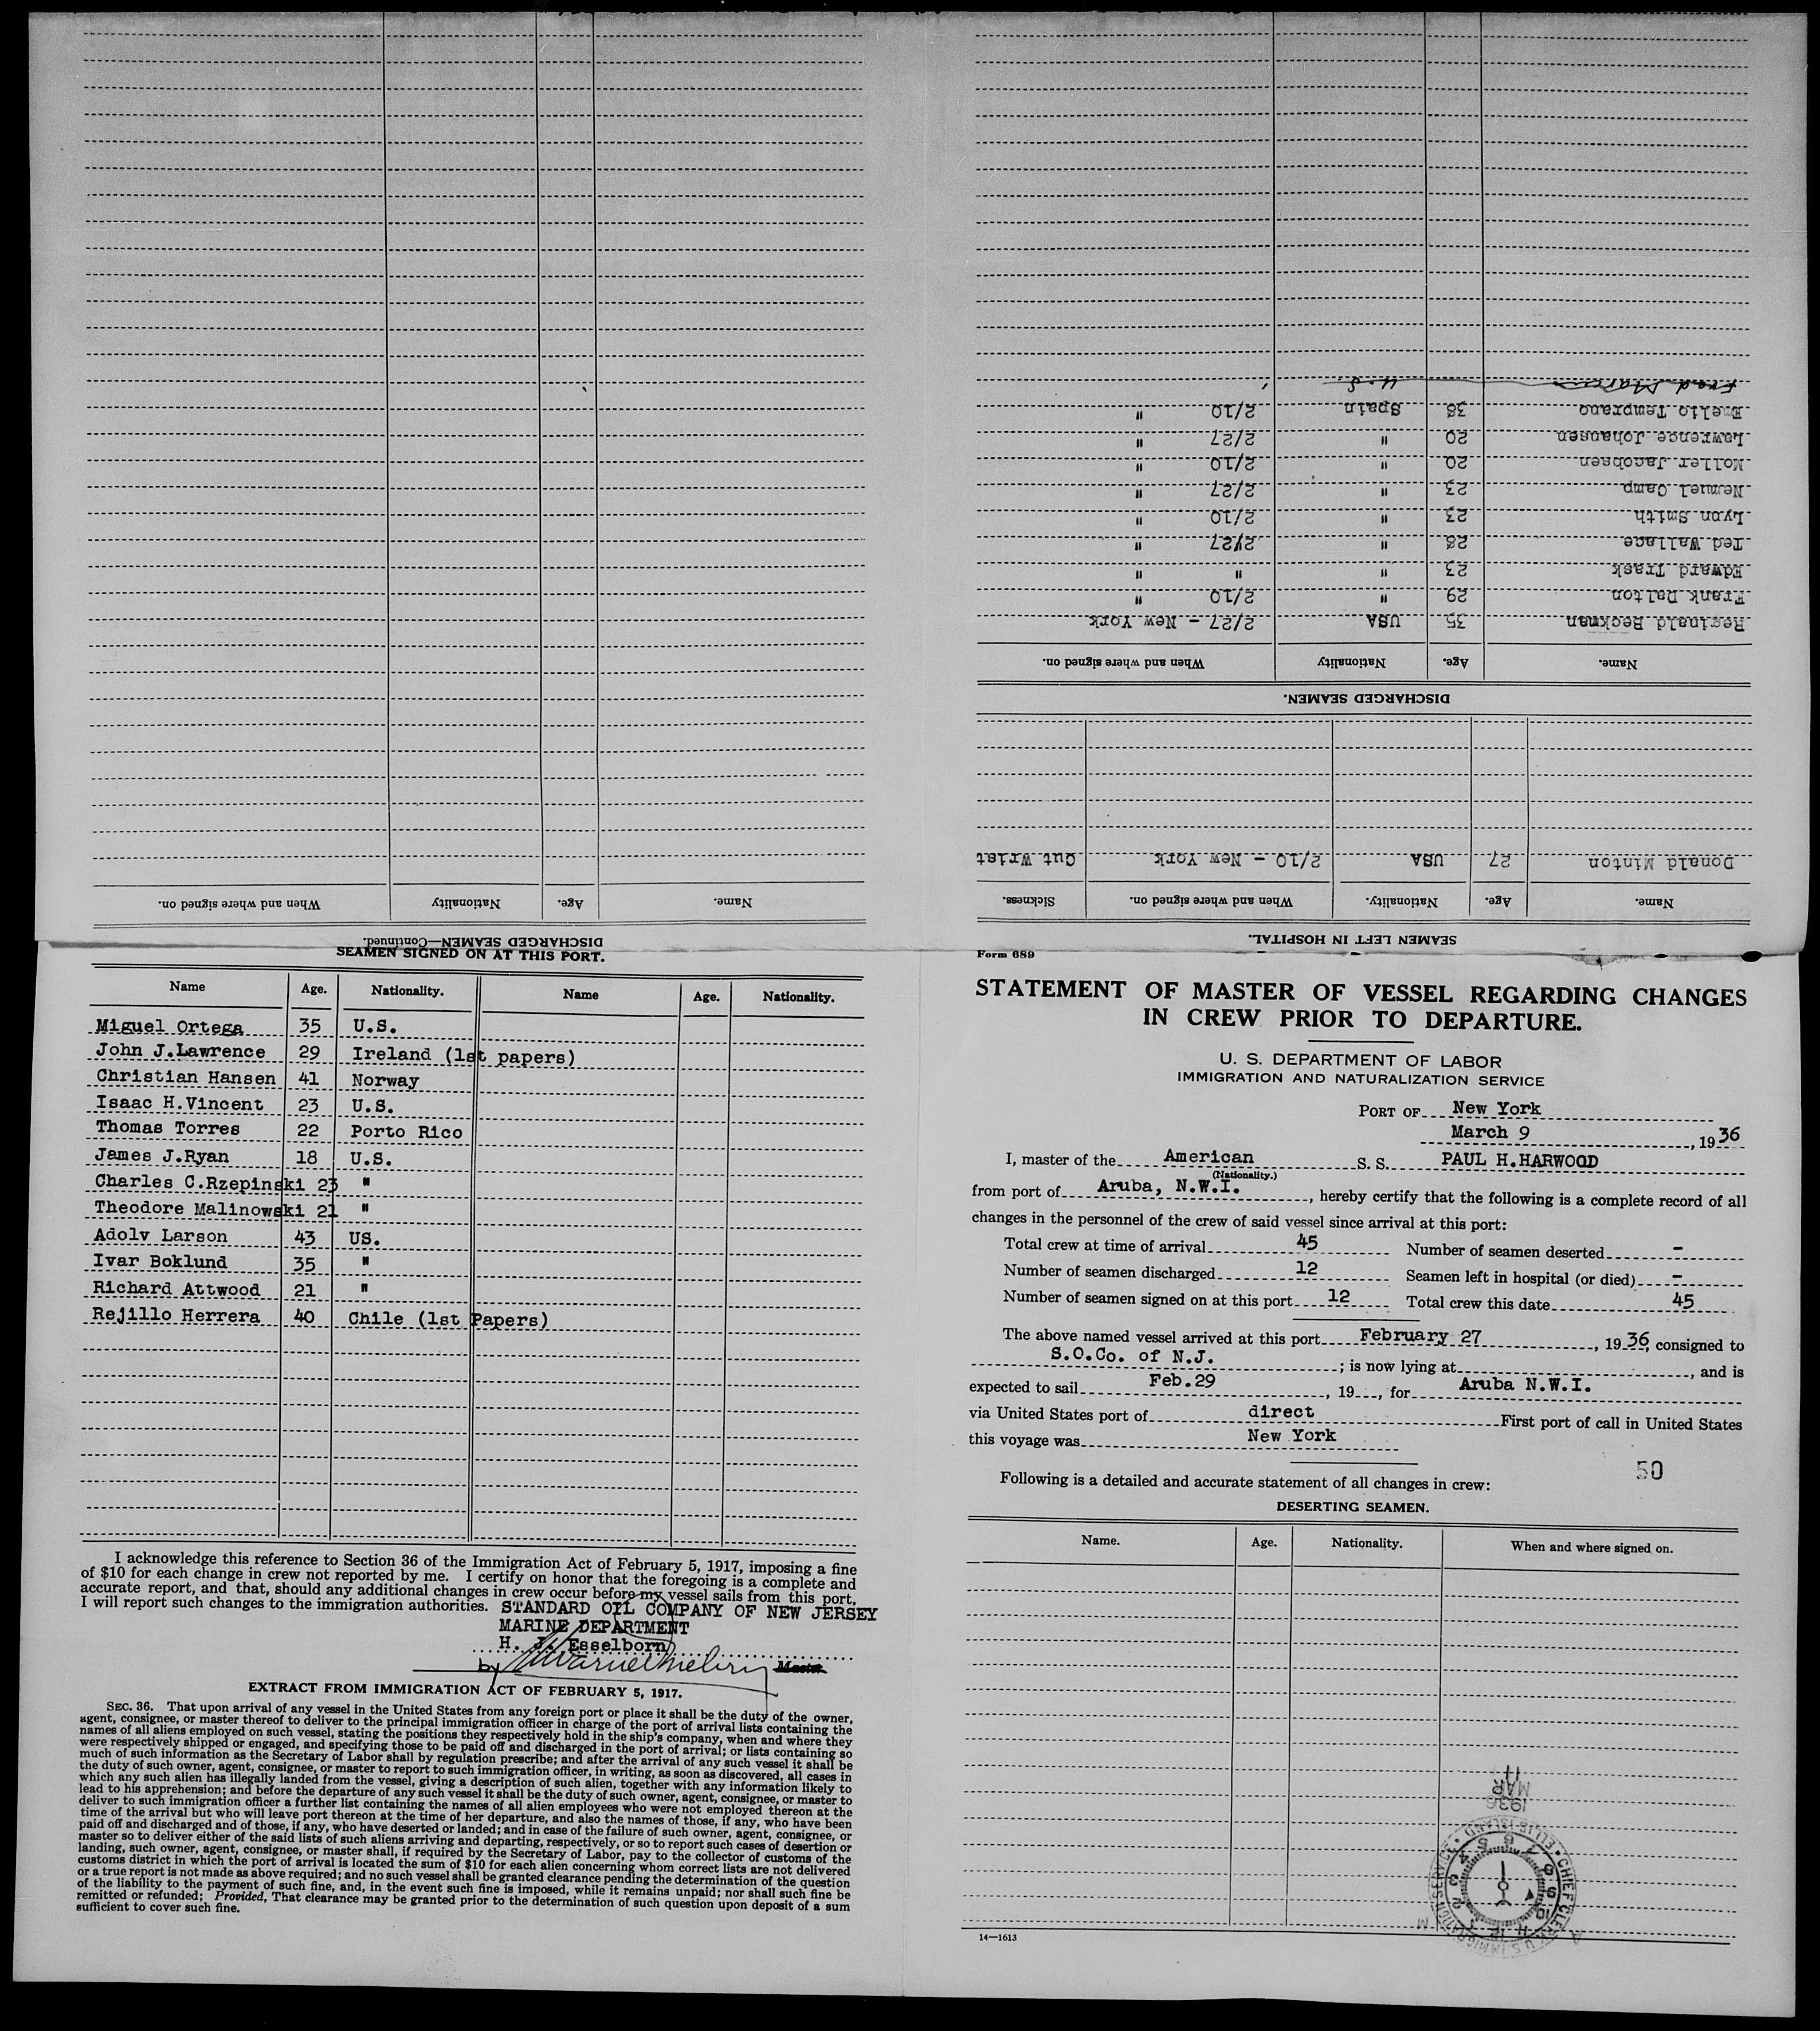 Form 689
STATEMENT OF MASTER OF VESSEL REGARDING CHANGES
IN CREW PRIOR TO DEPARTURE.
U. S. DEPARTMENT OF LABOR
IMMIGRATION AND NATURALIZATION SERVICE
PORT OF New York
March 9, 1936
I, master of the American S. S. PAUL H.HARWOOD
(Nationality.)
from port of Aruba, N.W.I., hereby certify that the following is a complete record of all
changes in the personnel of the crew of said vessel since arrival at this port:
Total crew at time of arrival 45 Number of seamen deserted -
Number of seamen discharged 12 Seamen left in hospital (or died) -
Number of seamen signed on at this port 12 Total crew this date 45
The above named vessel arrived at this port February 27, 1936, consigned to
S.O.Co. of N.J.; is now lying at, and is
expected to sail Feb.29, 19, for Aruba N.W.I.
via United States port of direct First port of call in United States
this voyage was New York
50
Following is a detailed and accurate statement of all changes in crew:
DESERTING SEAMEN.
Name. Age. Nationality. When and where signed on.
MAR 11 1936
CHIEF CLERK U.S. IMMIGRATION SERVICE ELLIS ISLAND
14—1613
SEAMEN LEFT IN HOSPITAL.
Name. Age. Nationality. When and where signed on. Sickness.
Donald Minton 27 USA 2/10 - New York Cut Wrist
DISCHARGED SEAMEN.
Name. Age. Nationality When and where signed on.
Reginald Beckman 35 USA 2/27 - New York
Frank Dalton 29 " 2/10 "
Edward Trask 23 " " "
Ted Wallace 28 " 2/27 "
Lynn Smith 23 " 2/10 "
Nemuel Camp 23 " 2/27 "
Moller Jacobsen 20 " 2/10 "
Lawrence Johansen 20 " 2/27 "
Emelio Temprano 38 Spain 2/10 "
Fred U.S.
DISCHARGED SEAMEN—Continued.
Name. Age. Nationality When and where signed on.
SEAMEN SIGNED ON AT THIS PORT.
Name Age. Nationality. Name Age. Nationality.
Miguel Ortega 35 U.S.
John J.Lawrence 29 Ireland (1st papers)
Christian Hansen 41 Norway
Isaac H.Vincent 23 U.S.
Thomas Torres 22 Porto Rico
James J.Ryan 18 U.S.
Charles C.Rzepinski 23 "
Theodore Malinowski 21 "
Adolv Larson 43 US.
Ivar Boklund 35 "
Richard Attwood 21 "
Rejillo Herrera 40 Chile (1st Papers)
I acknowledge this reference to Section 36 of the Immigration Act of February 5, 1917, imposing a fine
of $10 for each change in crew not reported by me. I certify on honor that the foregoing is a complete and
accurate report, and that, should any additional changes in crew occur before my vessel sails from this port,
I will report such changes to the immigration authorities.
STANDARD OIL COMPANY OF NEW JERSEY
MARINE DEPARTMENT
H. J. Esselborn
by Master.
EXTRACT FROM IMMIGRATION ACT OF FEBRUARY 5, 1917.
SEC. 36. That upon arrival of any vessel in the United States from any foreign port or place it shall be the duty of the owner,
agent, consignee, or master thereof to deliver to the principal immigration officer in charge of the port of arrival lists containing the
names of all aliens employed on such vessel, stating the positions they respectively hold in the ship's company, when and where they
were respectively shipped or engaged, and specifying those to be paid off and discharged in the port of arrival; or lists containing so
much of such information as the Secretary of Labor shall by regulation prescribe; and after the arrival of any such vessel it shall be
the duty of such owner, agent, consignee, or master to report to such immigration officer, in writing, as soon as discovered, all cases in
which any such alien has illegally landed from the vessel, giving a description of such alien, together with any information likely to
lead to his apprehension; and before the departure of any such vessel it shall be the duty of such owner, agent, consignee, or master to
deliver to such immigration officer a further list containing the names of all alien employees who were not employed thereon at the
time of the arrival but who will leave port thereon at the time of her departure, and also the names of those, if any, who have been
paid off and discharged and of those, if any, who have deserted or landed; and in case of the failure of such owner, agent, consignee, or
master so to deliver either of the said lists of such aliens arriving and departing, respectively, or so to report such cases of desertion or
landing, such owner, agent, consignee, or master shall, if required by the Secretary of Labor, pay to the collector of customs of the
customs district in which the port of arrival is located the sum of $10 for each alien concerning whom correct lists are not delivered
or a true report is not made as above required; and no such vessel shall be granted clearance pending the determination of the question
of the liability to the payment of such fine, and, in the event such fine is imposed, while it remains unpaid; nor shall such fine be
remitted or refunded; Provided, That clearance may be granted prior to the determination of such question upon deposit of a sum
sufficient to cover such fine.